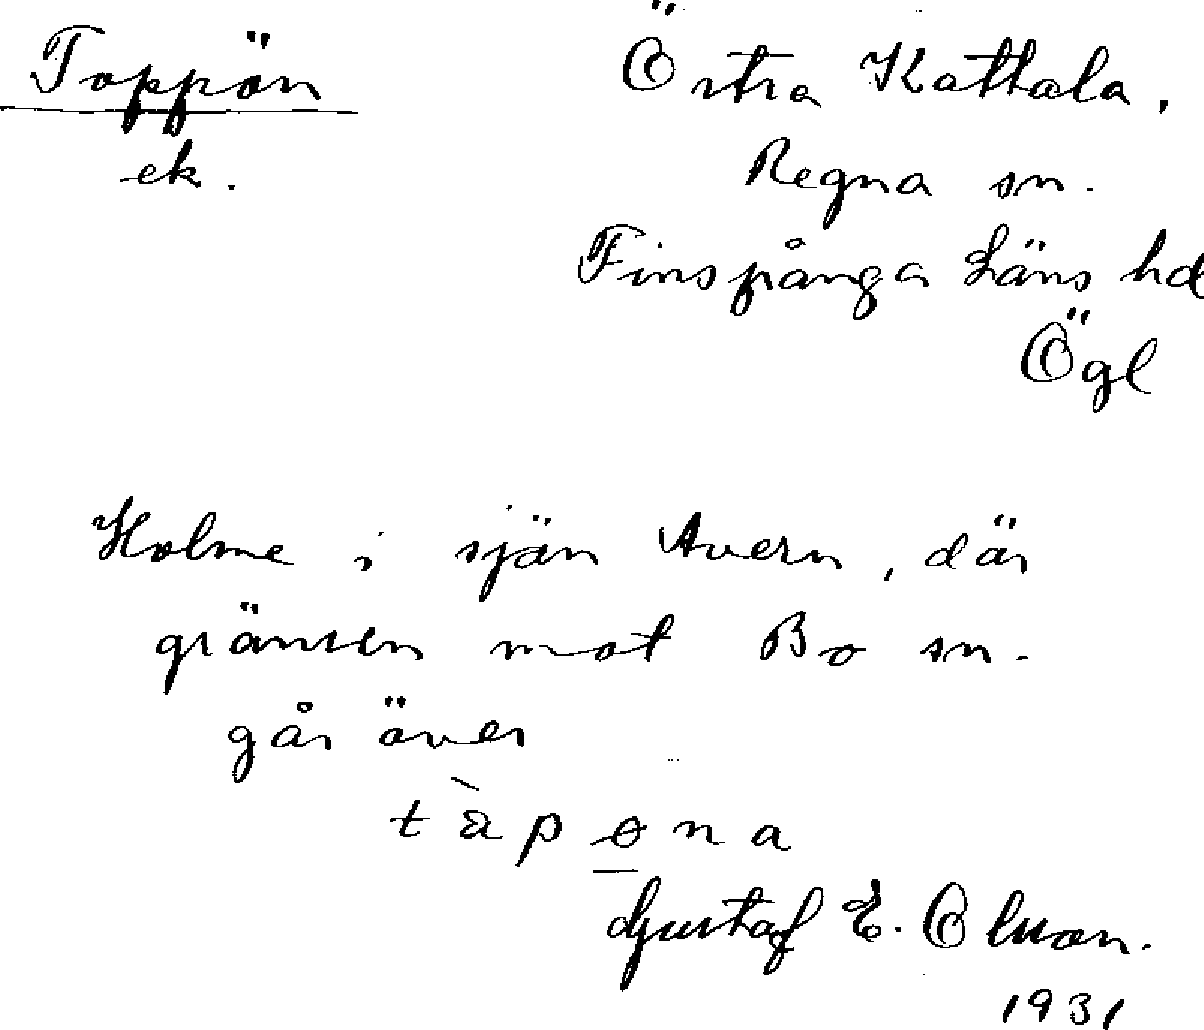 Toppön
ek.
Östra Kattala,
Regna sn.
Finspånga Läns hd
Ögl
Holme i sjön Avern, där
gränsen mot Bo sn.
går över
Gustaf E. Olsson.
1931